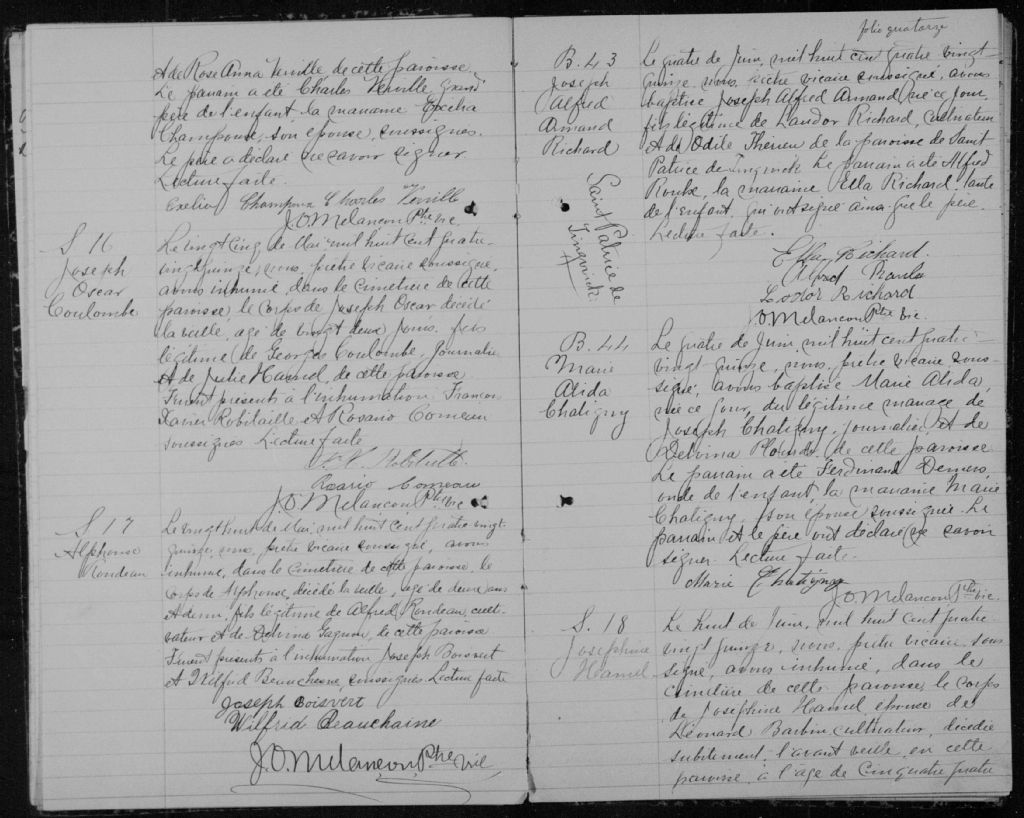 et de Rose Anna Verville de cette paroisse.
Le parrain a été Charles Verville, grand
père de l'enfant, la marraine Exelia
Champoux, son épouse, soussignés.
Le père a déclaré ne savoir signer.
Lecture faite.
Exelia Champoux Charles Verville
J.O. Melancon Ptre vic
S 16
Joseph
Oscar
Coulombe
Le vingt cinq de Mai mil huit cent quatre-
vingt quinze, nous, prêtre vicaire soussigné,
avons inhumé, dans le cimetière de cette
paroisse, le corps de Joseph Oscar décédé
la veille, agé de vingt deux jours, fils
légitime de Georges Coulombe, journalier
et de Julie Hamel, de cette paroisse
Furent présents à l'inhumation, François
Xavier Robitaille et Rosario Comeau
soussignés Lecture faite
F. X. Robitaille
Rosario Comeau
J.O. Melancon Ptre vic
S 17
Alphonse
Rondeau
Le vingt huit de Mai, mil huit cent quatre vingt
quinze, nous, prêtre vicaire soussigné, avons
inhumé, dans le cimetière de cette paroisse, le
corps de Alphonse, décédé la veille, agé de deux ans
et demi, fils légitime de Alfred Rondeau, culti-
vateur et de Delvina Gagnon, de cette paroisse
Furent présents à l'inhumation Joseph Boisvert
et Wilfrid Beauchesne, soussignés Lecture faite
Joseph Boisvert
Wilfrid Beauchaine
J.O. Melancon Ptre Vic
folio quatorze
B. 43
Joseph
Alfred
Armand
Richard
Saint Patrice de
Tingwick
Le quatre de Juin, mil huit cent quatre vingt-
quinze nous, prêtre vicaire soussigné, avons
baptisé Joseph Alfred Armand, né ce jour,
fils légitime de Richard, cultivateur
et de Odile Therien de la paroisse de Saint
Patrice de Tingwick Le parrain a été Alfred
la marraine Ella Richard, tante
de l'enfant, qui ont signé ainsi que le père.
Lecture faite.
Ella Richard.
Alfred
Richard
J.O. Melancon Ptre vic.
B. 44
Marie
Alida
Chatigny
Le quatre de Juin, mil huit cent quatre-
vingt-quinze, nous, prêtre vicaire sous-
signé, avons baptisé Marie Alida,
née ce jour, du légitime mariage de
Joseph Chatigny, journalier, et de
Delvina Plourde, de cette paroisse
Le parrain a été Ferdinand Demers
oncle de l'enfant la marraine Marie
Chatigny, son épouse soussignée. Le
parrain et le père ont déclaré ne savoir
signer. Lecture faite.
Marie Chatigny
J.O. Melancon Ptre vic.
S. 18
Josephine
Hamel
Le huit de Juin, mil huit cent quatre-
vingt quinze, nous, prêtre vicaire sous
signé, avons inhumé, dans le
cimetière de cette paroisse, le corps
de Josephine Hamel épouse de
Léonard Barbin, cultivateur, décédée
subitement l'avant veille en cette
paroisse à l'âge de cinquante quatre